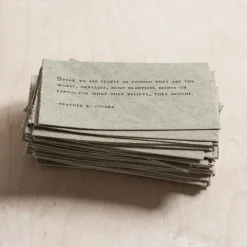 SPEAK TO ALL PEOPLE AS THOUGH THEY ARE THE
WISEST, GENTLEST, MOST BEAUTIFUL BEINGS ON
EARTH; FOR WHAT THEY BELIEVE, THEY BECOME.
-HEATHER K. O'HARA